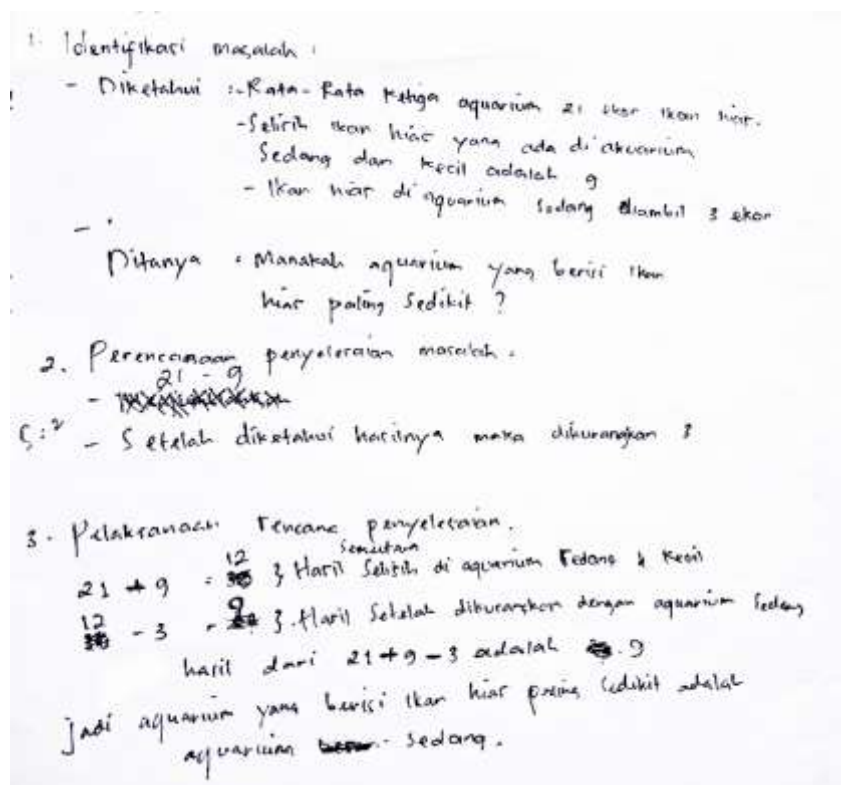 1. Identifikasi masalah :
- Diketahui :- Rata-Rata ketiga aquarium 21 ekor ikan hias.
- Selisih ikan hias yang ada di akuarium
Sedang dan kecil adalah 9
- Ikan hias di aquarium sedang diambil 3 ekor
-
Ditanya : Manakah aquarium yang berisi ikan
hias paling sedikit ?
2. Perencanaan penyelesaian masalah.
- 21 - 9
S:2
- Setelah diketahui hasilnya maka dikurangkan 3
3. Pelaksanaan rencana penyelesaian.
Sementara
21 + 9 = 12 } Hasil Selisih di aquarium sedang & kecil
12 - 3 = 9 } Hasil Setelah dikurangkan dengan aquarium sedang
hasil dari 21 + 9 - 3 adalah 9
Jadi aquarium yang berisi ikan hias paling sedikit adalah
aquarium sedang.